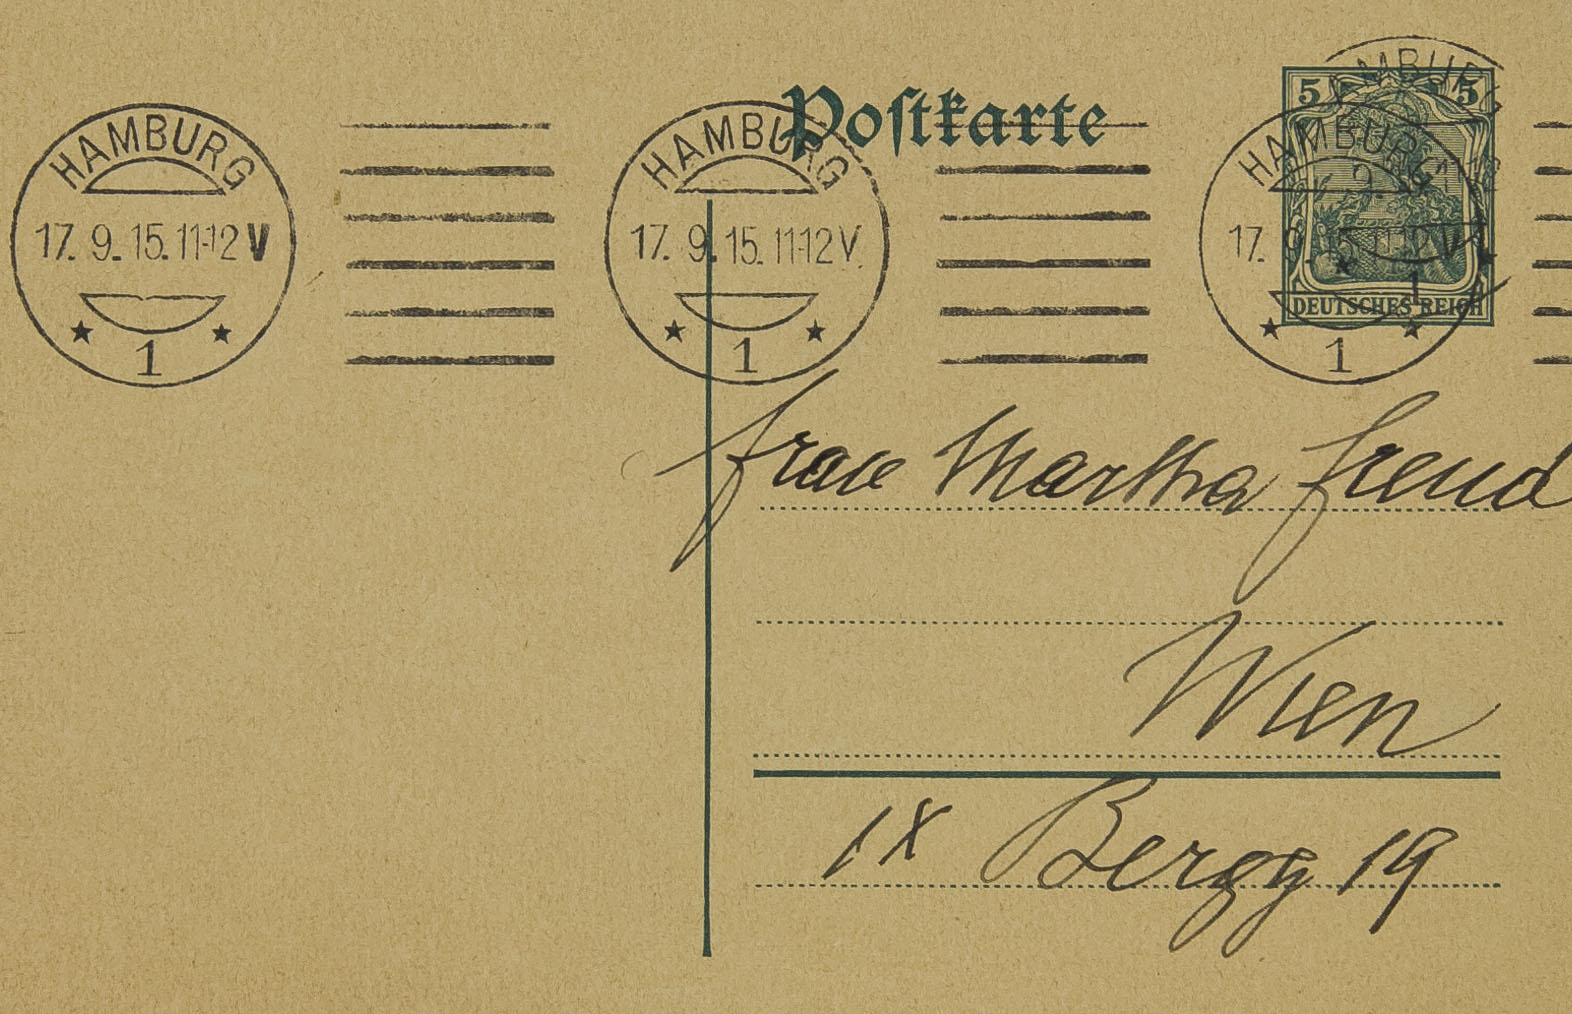 Postkarte
HAMBURG
17. 9. 15. 11-12 V
1
HAMBURG
17. 9. 15. 11-12 V.
1
HAMBURG
17. 9. 15. 11-12 V
1
5 5
DEUTSCHES REICH
Frau Martha Freud
Wien
IX Bergg 19